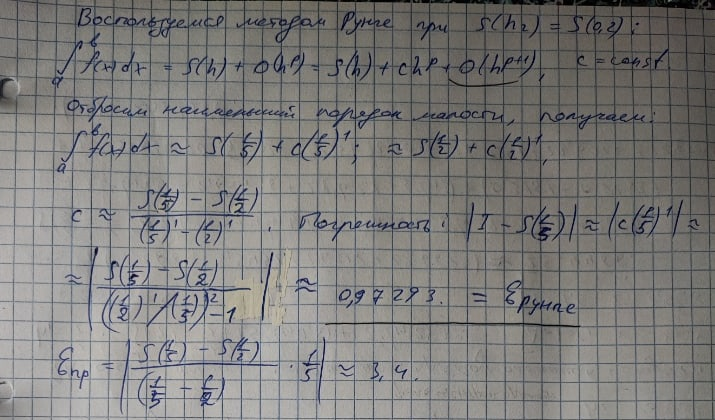 Воспользуемся методом Рунге при S(h₂) = S(0,2):
∫ₐᵇ f(x)dx = S(h) + O(hᵖ) = S(h) + chᵖ + O(hᵖ⁺¹), c = const
Отбросим наименьший порядок малости, получаем:
∫ₐᵇ f(x)dx ≈ S(1/5) + c(1/5)¹; ≈ S(1/2) + c(1/2)¹,
c ≈ (S(1/5) − S(1/2)) / ((1/5)¹ − (1/2)¹). Погрешность: |I − S(1/5)| ≈ |c(1/5)¹| ≈
≈ |(S(1/5) − S(1/2)) / ((1/2)¹/(1/5)¹ − 1)| ≈ 0,97293. = ε Рунге
ε пр = |(S(1/5) − S(1/2)) / (1/5 − 1/2) · 1/5| ≈ 3,4.